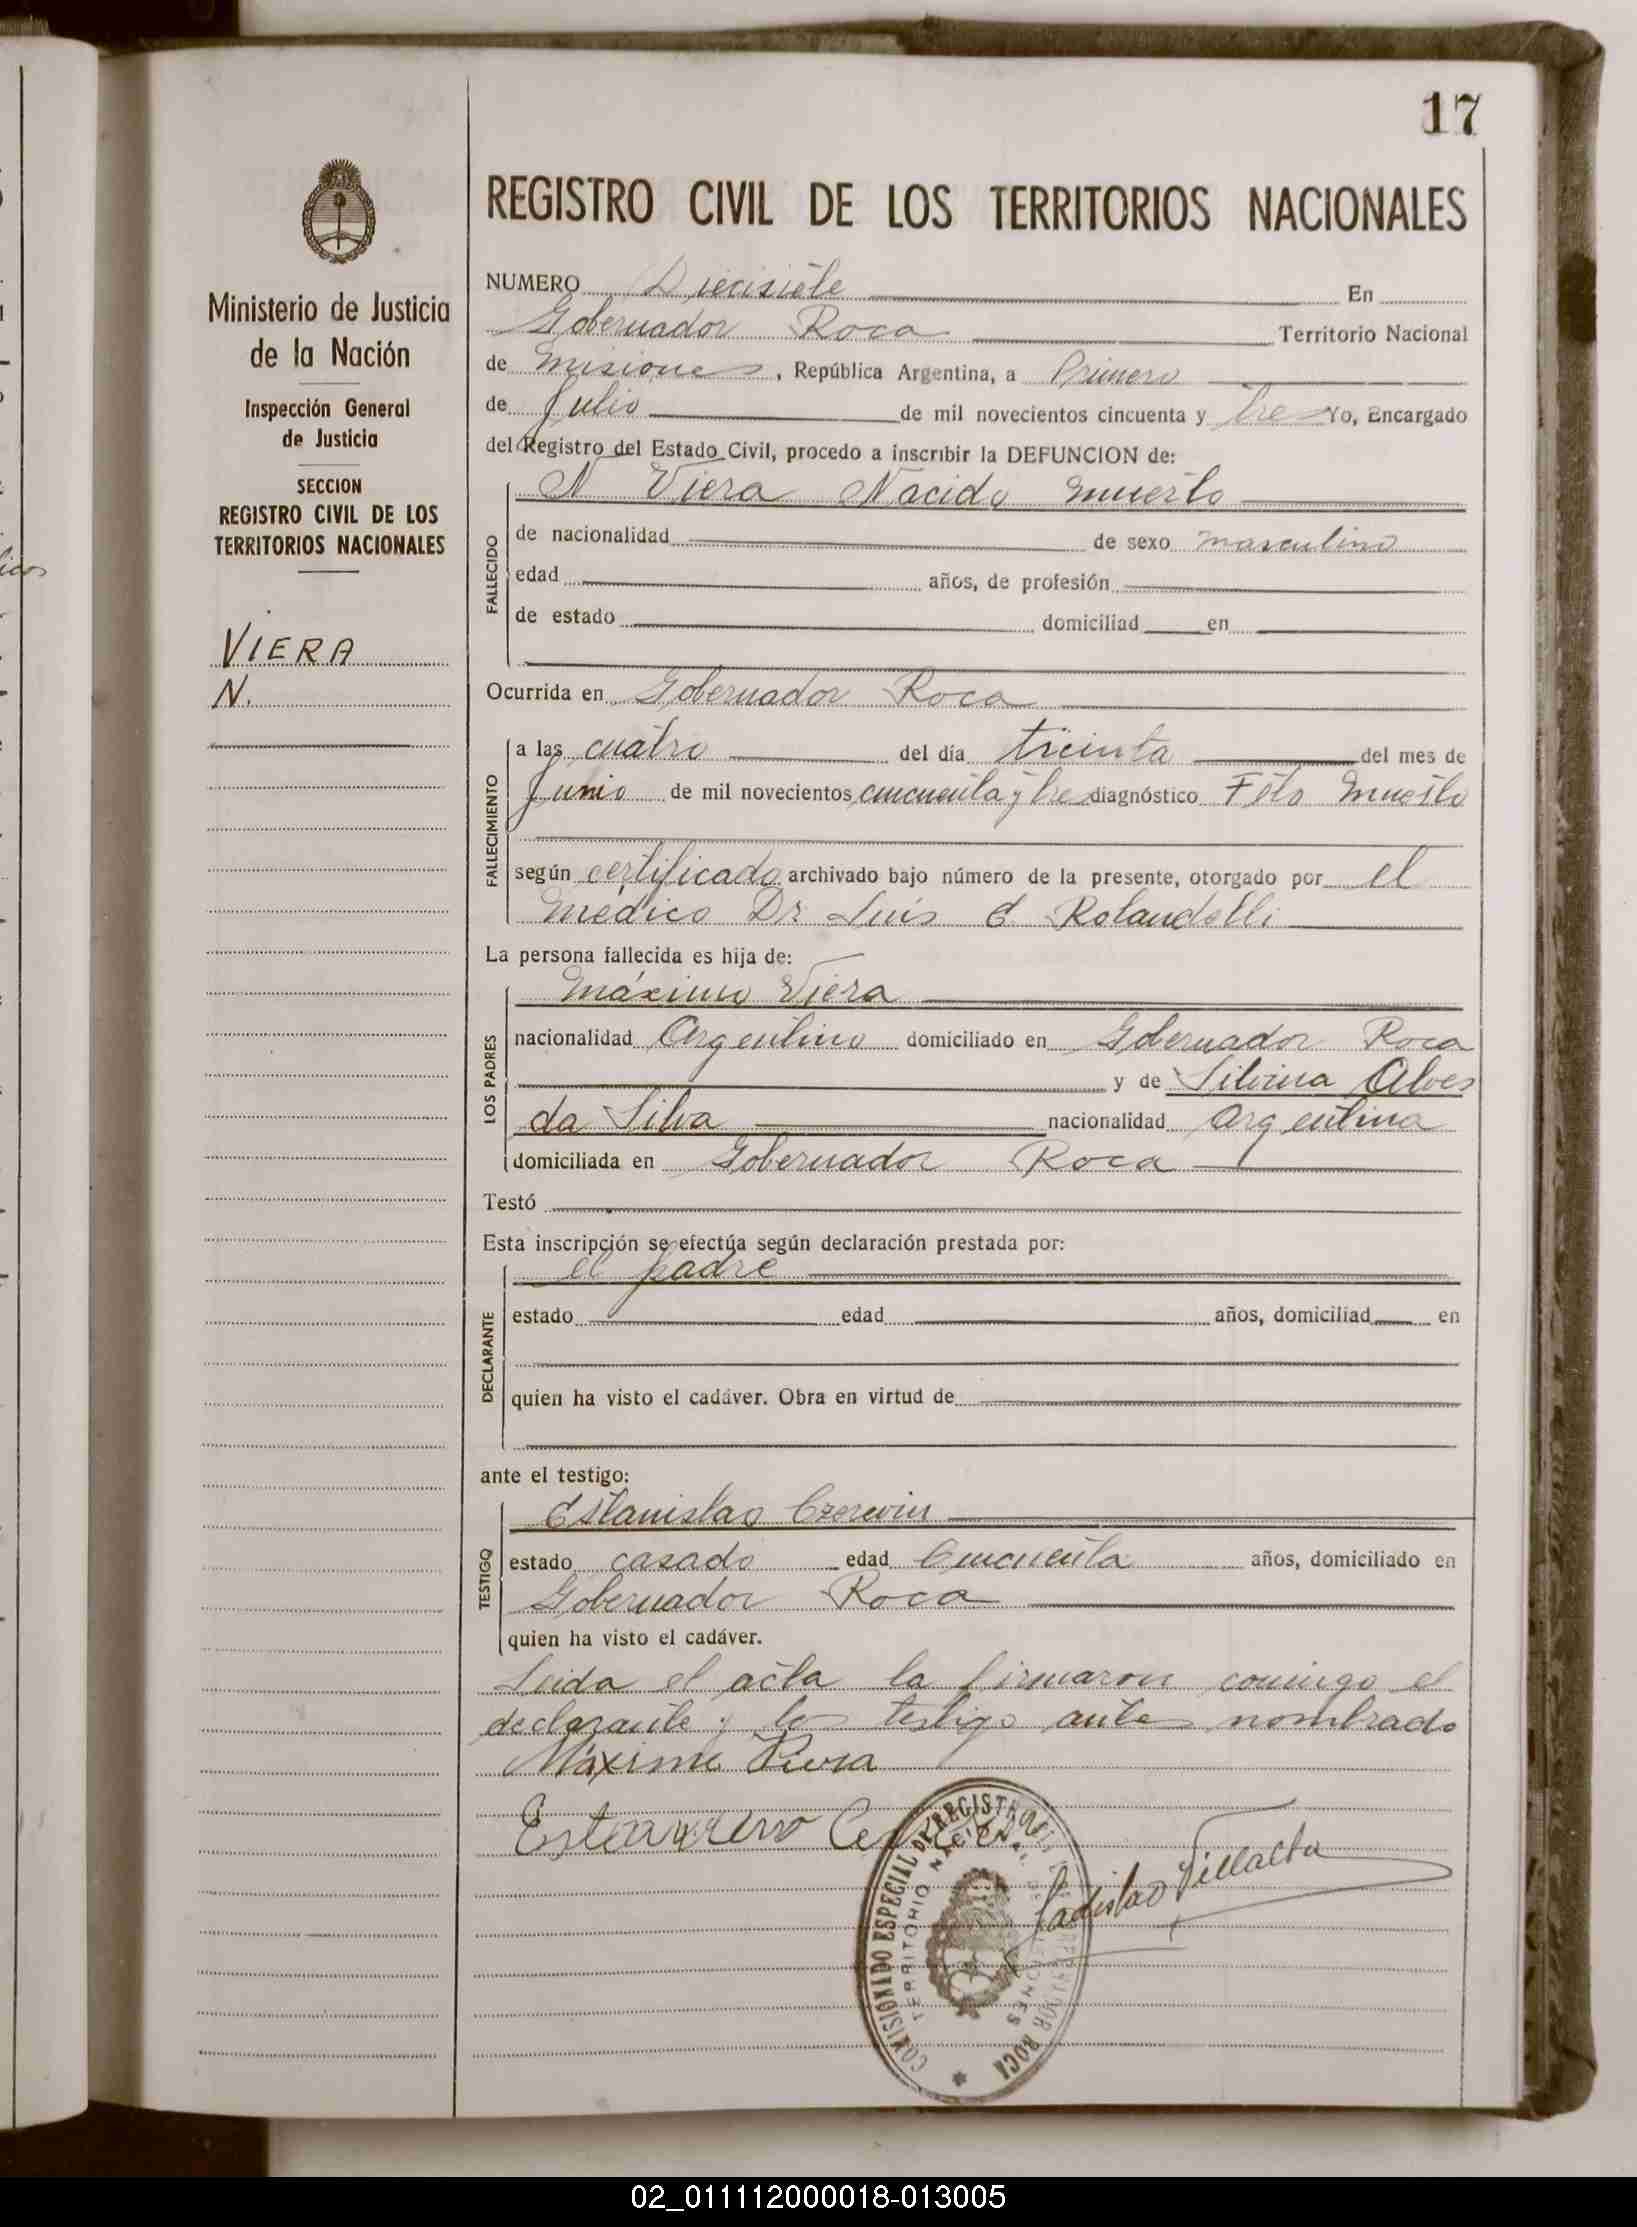 17
REGISTRO CIVIL DE LOS TERRITORIOS NACIONALES
Ministerio de Justicia
de la Nación
Inspección General
de Justicia
SECCION
REGISTRO CIVIL DE LOS
TERRITORIOS NACIONALES
VIERA
N.
NUMERO Diecisiete En
Gobernador Roca Territorio Nacional
de Misiones, República Argentina, a Primero
de Julio de mil novecientos cincuenta y tres Yo, Encargado
del Registro del Estado Civil, procedo a inscribir la DEFUNCION de:
FALLECIDO
N Viera Nacido muerto
de nacionalidad de sexo masculino
edad años, de profesión
de estado domiciliad en
Ocurrida en Gobernador Roca
FALLECIMIENTO
a las cuatro del día treinta del mes de
Junio de mil novecientos cincuenta y tres diagnóstico Féto Muerto
según certificado archivado bajo número de la presente, otorgado por el
médico Dr Luis E Rolandelli
La persona fallecida es hija de:
LOS PADRES
Máximo Viera
nacionalidad Argentino domiciliado en Gobernador Roca
y de Silvina Alves
da Silva nacionalidad argentina
domiciliada en Gobernador Roca
Testó
Esta inscripción se efectúa según declaración prestada por:
DECLARANTE
el padre
estado edad años, domiciliad en
quien ha visto el cadáver. Obra en virtud de
ante el testigo:
TESTIGO
Estanislao Czerwin
estado casado edad Cincuenta años, domiciliado en
Gobernador Roca
quien ha visto el cadáver.
Leida el acta la firmaron conmigo el
declarante y los testigo antes nombrado
Máximo Viera
Ladislao Villalba
COMISIONADO ESPECIAL DE REGISTRO CIVIL
TERRITORIO NACIONAL DE MISIONES
GOBERNADOR ROCA
02_011112000018-013005